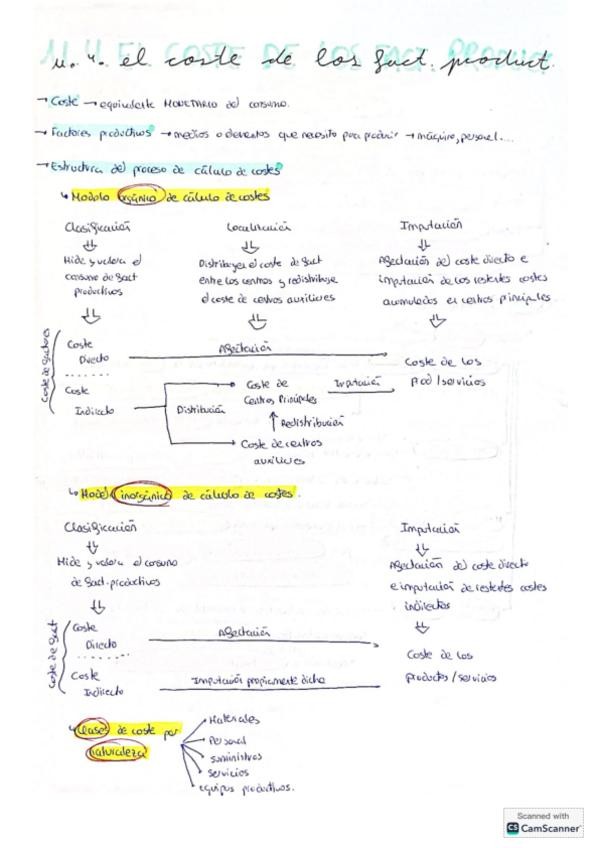 U.4. el coste de los fact. product.
→ Coste → equivalente MONETARIO del consumo.
→ Factores productivos → medios o elementos que necesito para producir → máquina, personal....
→ Estructura del proceso de cálculo de costes
↳ Modelo orgánico de cálculo de costes
Clasificación Localización Imputación
Mide y valora el consumo de fact productivos
Distribuye el coste de fact entre los centros y redistribuye el coste de centros auxiliares
Afectación del coste directo e imputación de los restantes costes acumulados en centros principales
Coste de factores
Coste Directo
Afectación
Coste de los prod / servicios
Coste Indirecto
Distribución
Coste de Centros Principales
Imputación
Redistribución
Coste de centros auxiliares
↳ Model inorgánico de cálculo de costes.
Clasificación Imputación
Mide y valora el consumo de fact. productivos
Afectación del coste directo e imputación de restantes costes indirectos
Coste de fact
Coste Directo
Afectación
Coste de los productos / servicios
Coste Indirecto
Imputación propiamente dicha
↳ Clases de coste por naturaleza
Materiales
Personal
suministros
servicios
equipos productivos.
Scanned with
CS CamScanner